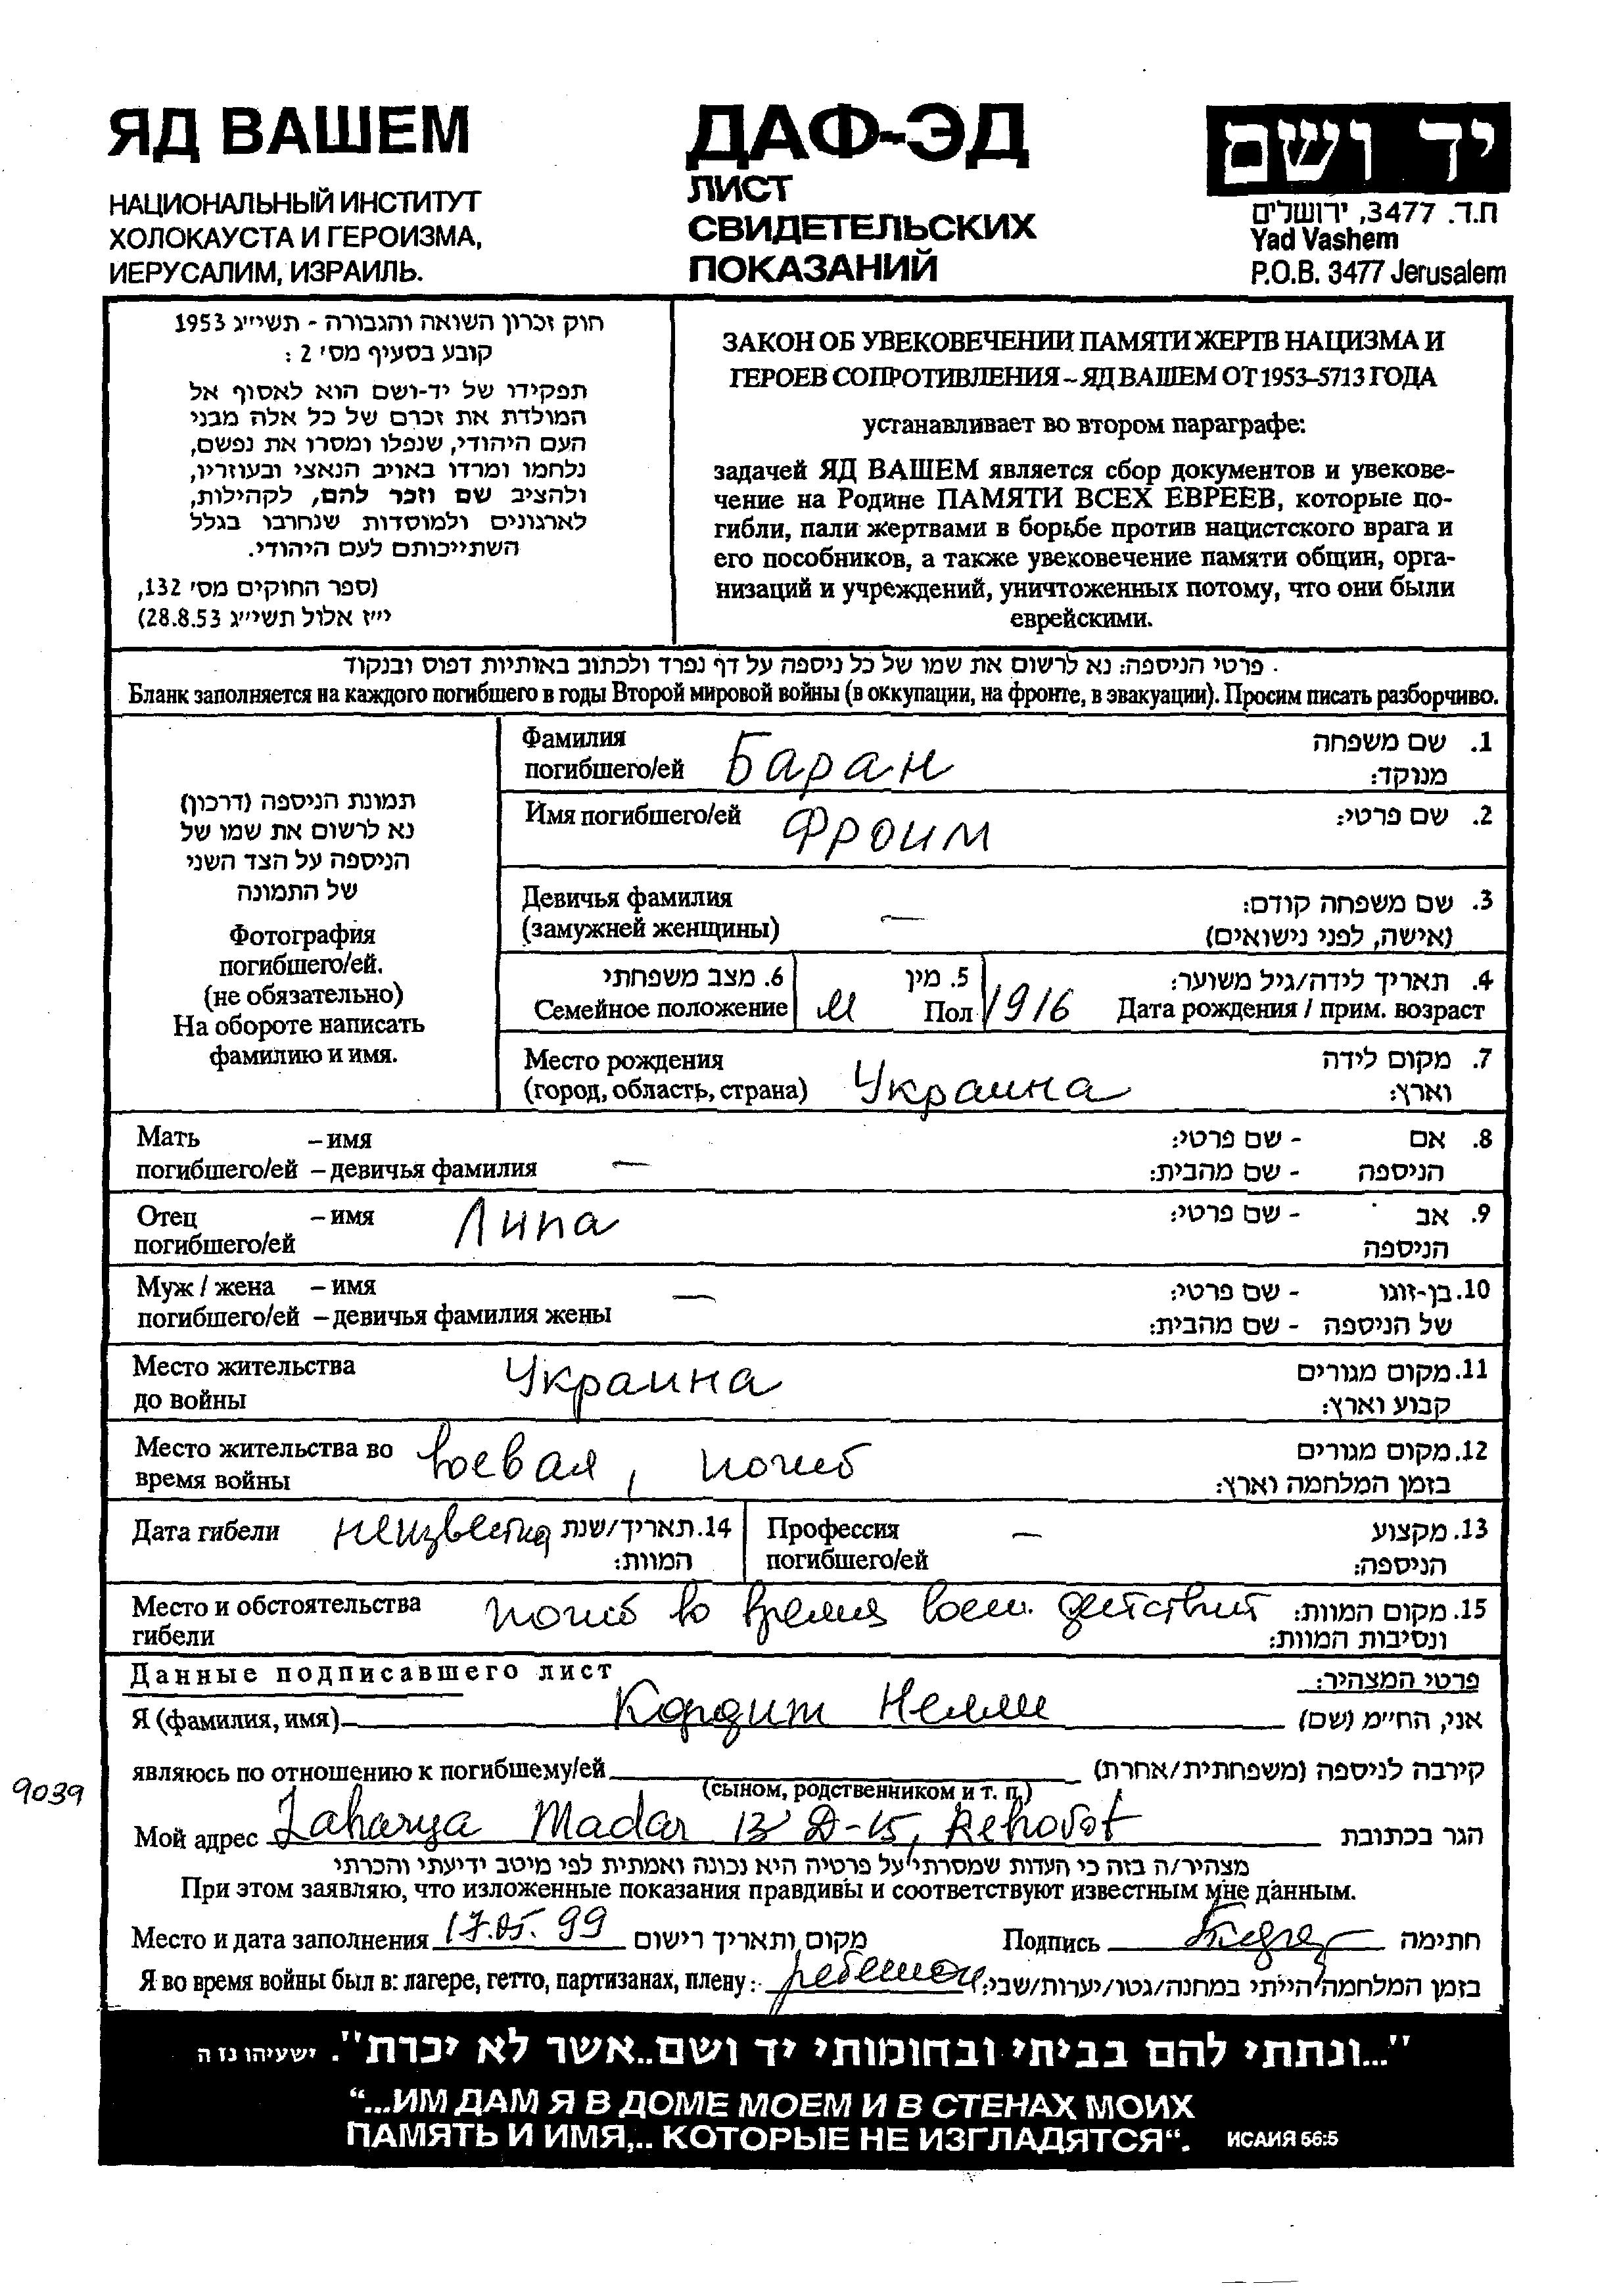 ЯД ВАШЕМ
НАЦИОНАЛЬНЫЙ ИНСТИТУТ
ХОЛОКАУСТА И ГЕРОИЗМА,
ИЕРУСАЛИМ, ИЗРАИЛЬ.
ДАФ-ЭД
ЛИСТ
СВИДЕТЕЛЬСКИХ
ПОКАЗАНИЙ
יד ושם
ת.ד. 3477, ירושלים
Yad Vashem
P.O.B. 3477 Jerusalem
חוק זכרון השואה והגבורה - תשי״ג 1953
קובע בסעיף מס׳ 2 :
תפקידו של יד-ושם הוא לאסוף אל
המולדת את זכרם של כל אלה מבני
העם היהודי, שנפלו ומסרו את נפשם,
נלחמו ומרדו באויב הנאצי ובעוזריו,
ולהציב שם וזכר להם, לקהילות,
לארגונים ולמוסדות שנחרבו בגלל
השתייכותם לעם היהודי.
(ספר החוקים מס׳ 132,
י״ז אלול תשי״ג 28.8.53)
ЗАКОН ОБ УВЕКОВЕЧЕНИИ ПАМЯТИ ЖЕРТВ НАЦИЗМА И
ГЕРОЕВ СОПРОТИВЛЕНИЯ – ЯД ВАШЕМ ОТ 1953–5713 ГОДА
устанавливает во втором параграфе:
задачей ЯД ВАШЕМ является сбор документов и увекове-
чение на Родине ПАМЯТИ ВСЕХ ЕВРЕЕВ, которые по-
гибли, пали жертвами в борьбе против нацистского врага и
его пособников, а также увековечение памяти общин, орга-
низаций и учреждений, уничтоженных потому, что они были
еврейскими.
פרטי הניספה: נא לרשום את שמו של כל ניספה על דף נפרד ולכתוב באותיות דפוס ובנקוד
Бланк заполняется на каждого погибшего в годы Второй мировой войны (в оккупации, на фронте, в эвакуации). Просим писать разборчиво.
תמונת הניספה (דרכון)
נא לרשום את שמו של
הניספה על הצד השני
של התמונה
Фотография
погибшего/ей.
(не обязательно)
На обороте написать
фамилию и имя.
Фамилия 1. שם משפחה
погибшего/ей Баран מנוקד:
Имя погибшего/ей Фроим 2. שם פרטי:
Девичья фамилия — 3. שם משפחה קודם:
(замужней женщины) (אישה, לפני נישואים)
6. מצב משפחתי 5. מין 4. תאריך לידה/גיל משוער:
Семейное положение м Пол 1916 Дата рождения / прим. возраст
Место рождения 7. מקום לידה
(город, область, страна) Украина וארץ:
Мать – имя 8. אם - שם פרטי:
погибшего/ей – девичья фамилия — הניספה - שם מהבית:
Отец – имя Липа 9. אב - שם פרטי:
погибшего/ей הניספה
Муж / жена – имя — 10. בן-זוגו - שם פרטי:
погибшего/ей – девичья фамилия жены של הניספה - שם מהבית:
Место жительства Украина 11. מקום מגורים
до войны קבוע וארץ:
Место жительства во Воевал, погиб 12. מקום מגורים
время войны בזמן המלחמה וארץ:
Дата гибели неизвестна 14. תאריך/שנת Профессия — 13. מקצוע
המוות: погибшего/ей הניספה:
Место и обстоятельства погиб во время воен. действий 15. מקום המוות:
гибели ונסיבות המוות:
Данные подписавшего лист פרטי המצהיר:
Я (фамилия, имя) Кордит Нелли אני, הח״מ (שם)
являюсь по отношению к погибшему/ей קירבה לניספה (משפחתית/אחרת)
(сыном, родственником и т. п.)
9039
Мой адрес Zaharya Madar 13 D-15, Rehovot הגר בכתובת
מצהיר/ה בזה כי העדות שמסרתי על פרטיה היא נכונה ואמתית לפי מיטב ידיעתי והכרתי
При этом заявляю, что изложенные показания правдивы и соответствуют известным мне данным.
Место и дата заполнения 17.05.99 מקום ותאריך רישום Подпись חתימה
Я во время войны был в: лагере, гетто, партизанах, плену: ребенком בזמן המלחמה הייתי במחנה/גטו/יערות/שבי:
"...ונתתי להם בביתי ובחומותי יד ושם..אשר לא יכרת". ישעיהו נז ה
“...ИМ ДАМ Я В ДОМЕ МОЕМ И В СТЕНАХ МОИХ
ПАМЯТЬ И ИМЯ,.. КОТОРЫЕ НЕ ИЗГЛАДЯТСЯ“. ИСАИЯ 56:5